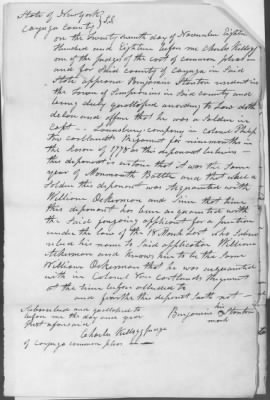 State of New York
Cayuga County } S.S.
on the Twenty ninth day of November Eighteen
Hundred and Eighteen before me Charles Kellogg
one of the Judges of the Court of common pleas in
and for Said County of Cayuga in Said
State appeared Benjamin Stanton resident in
the Town of Sempronius in Said county and
being duly quallified according to Law doth
depose and say that he was a Soldier in
Capt Lounsbury company in Colonel Philip
Van Cortlandts Regiment for nine months in
the Season of 1778 as this deponent believes
this deponent is certain that it was the Same
year of Monmouth Battle and that while a
Soldier this deponent was Acquainted with
William Ockerman and Since that time
this deponent has been acquainted with
the Said foregoing applicant for a pention
under the Law of the 18 March last who Subscri
bed his name to Said application William
Ackerman and knows him to be the Same
William Ockerman that he was acquainted
with in Colonel Van Cortlandts Regiment
at the time before alluded to
and further this deponent Saith not
Subscribed and quallified to
before me the day and year
first aforesaid
Benjamin his mark Stanton
Charles Kellogg Judge
of Cayuga common pleas